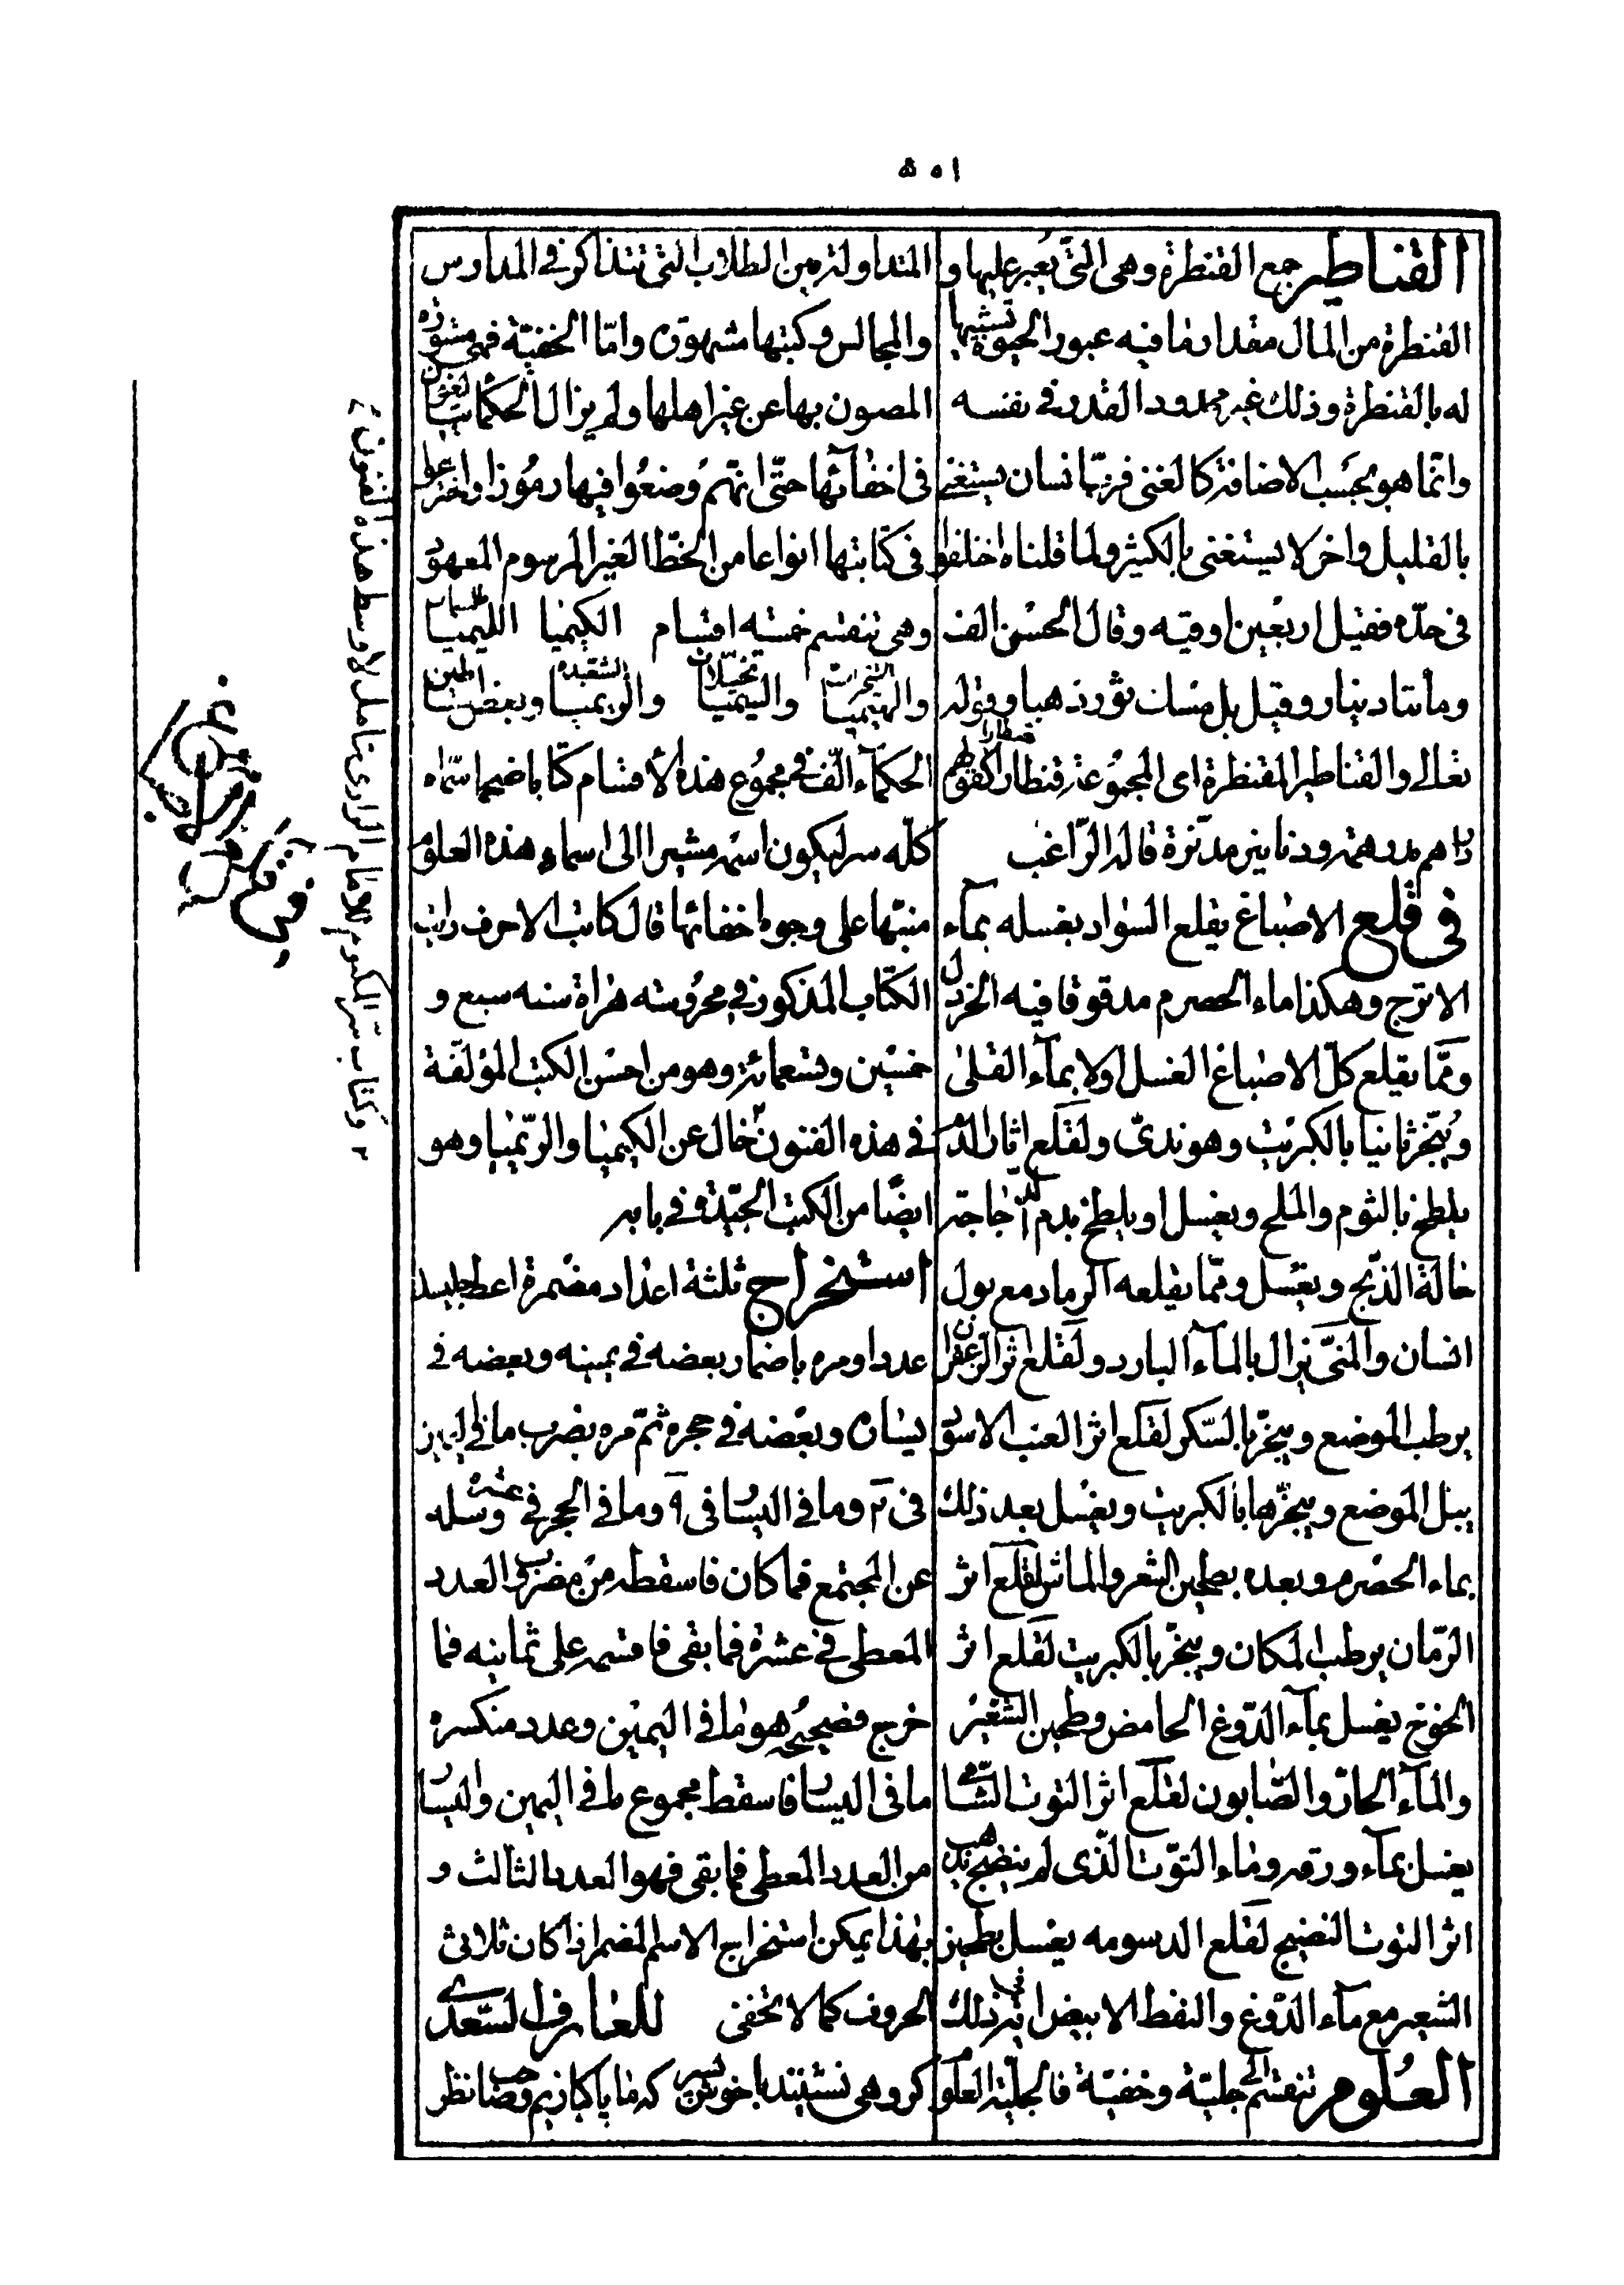 ٥٠١
القناطير جمع القنطرة وهى التى يعبر عليها و
القنطرة من المال مقدار ما فيه عبور الحيوة تشبيها
له بالقنطرة وذلك غير محدود القدر فى نفسه
وانما هو بحسب الاضافة كالغنى فربّ انسان يستغنى
بالقليل واخر لا يستغنى بالكثير ولما قلناه اختلفوا
فى حدّه فقيل اربعين اوقيه وقال الحسن الف
ومأتا دينار وقيل بل مسك ثور ذهبا وقوله
تعالى والقناطير المقنطرة اى المجموعة قنطارا قنطارا كقولهم
دراهم مدرهمة ودنانير مدنّرة قاله الرّاغب
فى قلع الاصباغ يقلع السواد بغسله بمآء
الاترج وهكذا ماء الحصرم مدقوقا فيه الخردل
وممّا يقلع كلّ الاصباغ الغسل اولا بمآء القلى
ويبخّر ثانيا بالكبريت وهو ندىّ ولقلع اثار الدّم
يلطخ بالثوم والملح ويغسل او يلطخ بدم الدجاجة
حالة الذّبح ويغسل وممّا يقلعه الرماد مع بول
انسان والمنىّ يزال بالمآء البارد ولقلع اثر الزعفران
يرطب الموضع ويبخّر بالسّكر لقلع اثر العنب الاسود
يبل الموضع ويبخّرها بالكبريت ويغسل بعد ذلك
بماء الحصرم وبعده بطحين الشعير والماش لقلع اثر
الرّمان يرطب المكان ويبخّر بالكبريت لقلع اثر
الخوخ يغسل بمآء الدّوغ الحامض وطحين الشعير
والمآء الحارّ والصّابون لقلع اثر التوت الشّامى
يغسل بمآء ورقه وماء التوت الّذى لم ينضج يذهب
اثر التوت النضيج لقلع الدسومه يغسل بطحين
الشعير مع مآء الدّوغ والنفط الابيض اثر ذلك
العلوم تنقسم الى جليّة وخفيّة فالجليّة العلوم
المتداولة بين الطلاب التى تتذاكر فى المدارس
والمجالس وكتبها مشهورة وامّا الخفيّة فهى مستورة
المصون بها عن غير اهلها ولم يزال الحكمآء يبالغون
فى اخفآئها حتّى انّهم وضعوا فيها رموزا واخترعوا
فى كتابتها انواعا من الخطّ الغير المرسوم المعهود
وهى تنقسم خمسه اقسام الكيميا الليميا طلسمات
والهيميا التسخيرات والسيميا تخيلات والريميا الشعبده وبعض اساطين
الحكمآء الّف فى مجموع هذه الأقسام كتابا ضخما سمّاه
كلّه سر ليكون اسمه مشيرا الى اسماء هذه العلوم
منبّها على وجوه اخفائها قال كاتب الاحرف رايت
الكتاب المذكور فى محروسه هراة سنه سبع و
خمسين وتسعمائة وهو من احسن الكتب المؤلّفة
فى هذه الفنون ٢ خال عن الكيميا والرّيميا وهو
ايضا من الكتب الجيّدة فى بابه
استخراج ثلثة اعداد مضمرة اعط جليسك
عددا ومره باضمار بعضه فى يمينه وبعضه فى
يساره وبعضه فى حجره ثمّ مره بضرب ما فى اليمين
فى ٢ وما فى اليسار فى ٩ وما فى الحجر فى عشرة وسله
عن المجتمع فما كان فاسقطه من مضروب العدد
المعطى فى عشرة فما بقى فاقسمه على ثمانيه فما
خرج فصحيحه هو ما فى اليمين وعدد منكسره
ما فى اليسار فاسقط مجموع ما فى اليمين واليسار
من العدد المعطى فما بقى فهو العدد الثالث و
بهذا يمكن استخراج الاسم المضمر اذا كان ثلاثى
الحروف كما لا يخفى للعارف السّعدى
كروهى نشينند با خوش پسر كه ما پاكبازيم وصاحب نظر
٢ وكتاب سرّ المكتوم للامام الرازى تامل لاوسط هذه الفنون